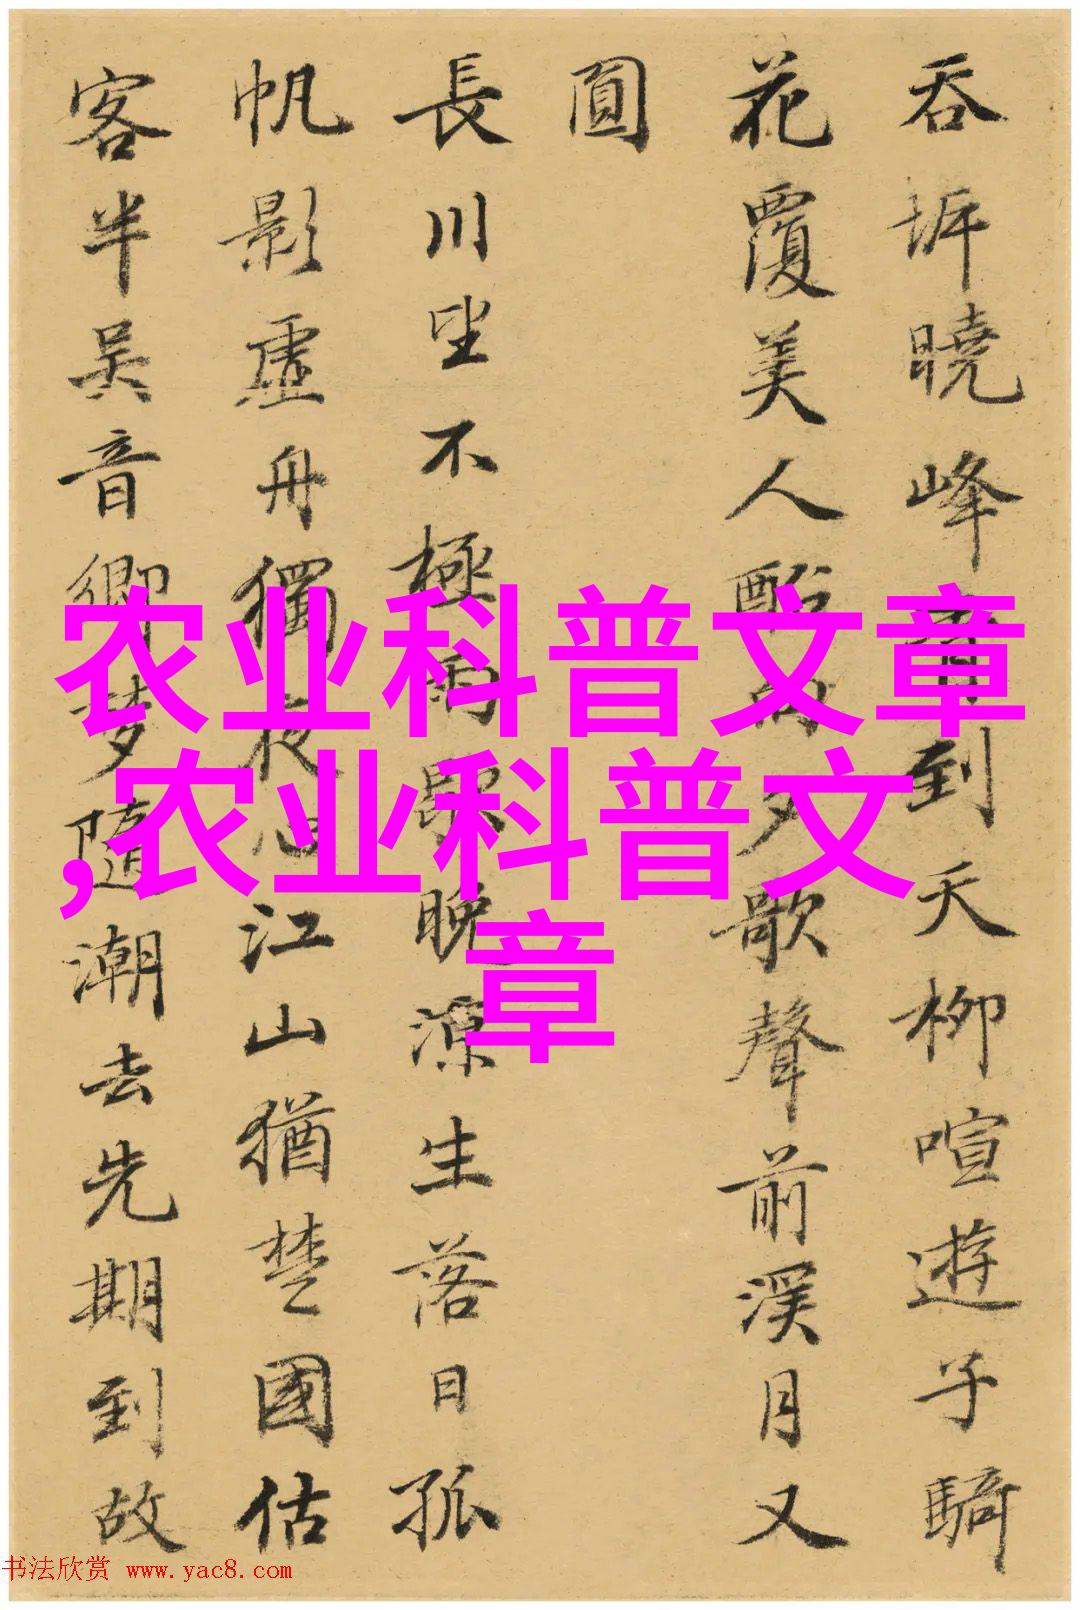 吞坼曉峰青到天柳喧遊子騎
花覆美人酣向夕歌聲前溪月又
圓
長川坐不極雨歇晚涼生落日孤
帆影虛舟獨夜心江山猶楚國估
客半吳音鄉夢隨潮去先期到故
农业科普文章
,农业科普文
章
书法欣赏 www.yac8.com